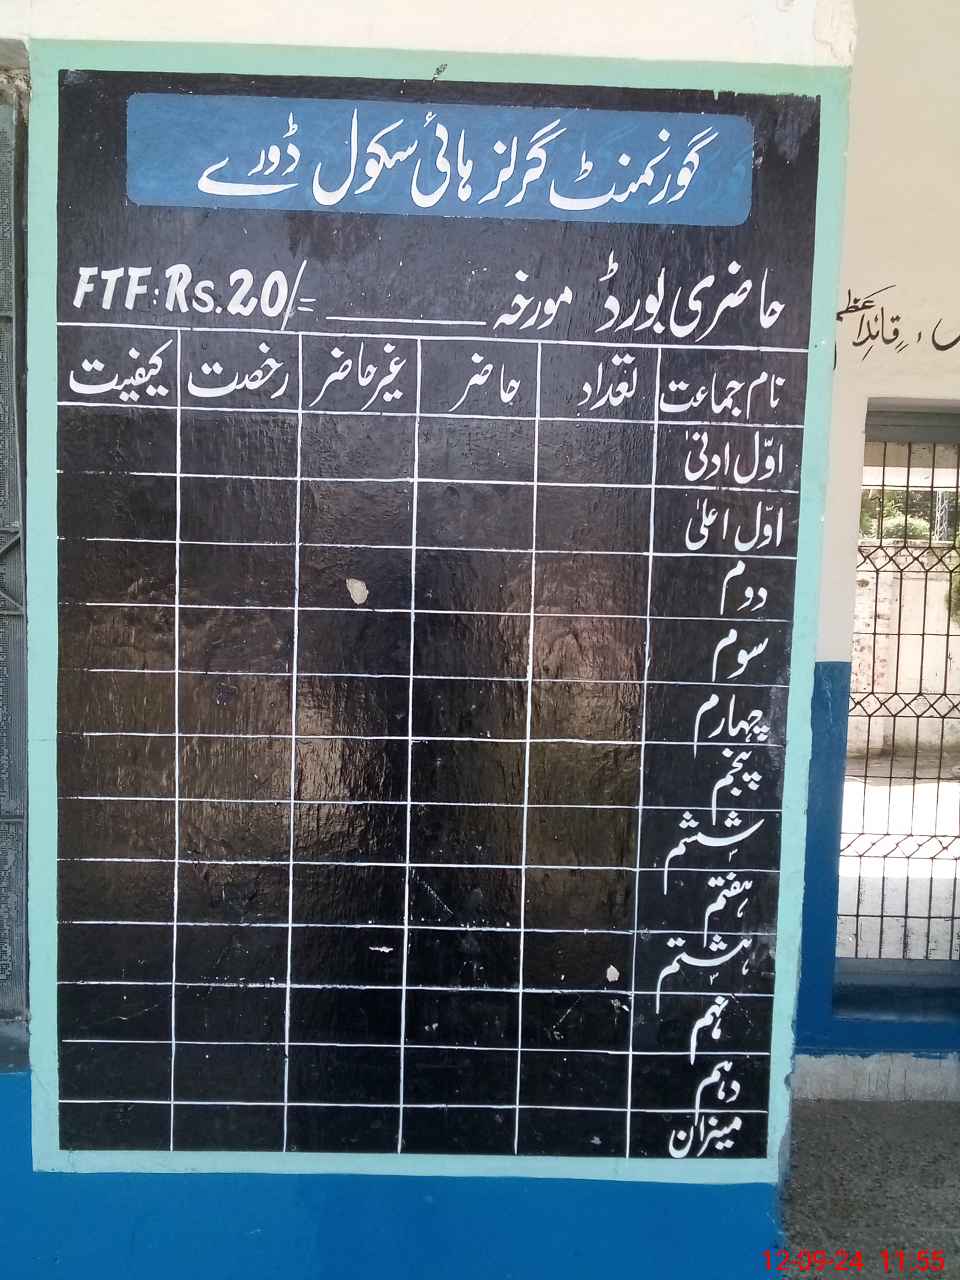 گورنمنٹ گرلز ہائی سکول ڈورے
حاضری بورڈ مورخہ ________ FTF: Rs.20/=
نام جماعت تعداد حاضر غیر حاضر رخصت کیفیت
اوّل ادنیٰ
اوّل اعلیٰ
دوم
سوم
چہارم
پنجم
ششم
ہفتم
ہشتم
نہم
دہم
میزان
قائدِاعظم
12-09-24 11:55